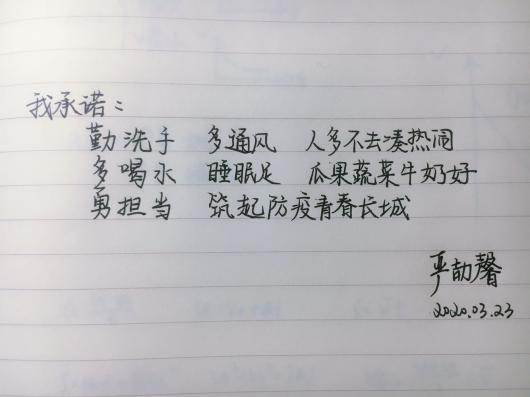 我承诺：
勤洗手 多通风 人多不去凑热闹
多喝水 睡眠足 瓜果蔬菜牛奶好
勇担当 筑起防疫青春长城
严劼馨
2020.03.23